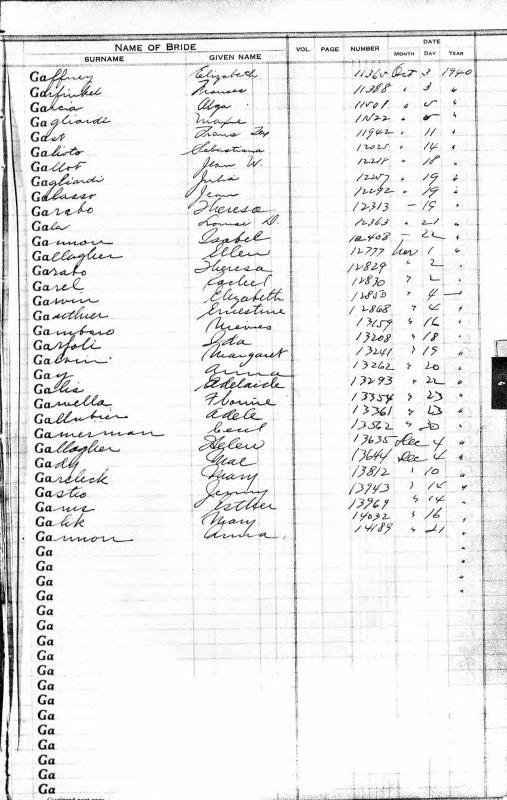 NAME OF BRIDE
SURNAME GIVEN NAME VOL. PAGE NUMBER DATE
MONTH DAY YEAR
Gaffney Elizabeth 11365 Oct 3 1940
Garfinkel Frances 11388 " 3 "
Garcia Olga 11508 " 5 "
Gagliardi 11522 " 5 "
Gast 11942 " 11 "
Galioto Sebastiana 12025 " 14 "
Gallot Jean W. 12218 " 18 "
Gagliardi Julia 12257 " 19 "
Galasso Jean 12292 " 19 "
Garabo Theresa 12313 - 19 "
Gala D. 12363 " 21 "
Gannon Isabel 12408 - 22 "
Gallagher Ellen 12777 Nov 1 "
Garabo Theresa 12829 " 2 "
Garel Rachel 12830 " 2 "
Garvin Elizabeth 12850 " 4 -
Gauthier Ernestine 12868 " 4 "
Gambaro Nieves 13159 " 16 "
Garfoli Ida 13208 " 18 "
Galvin Margaret 13241 " 19 "
Gay Anna 13262 " 20 "
Galis Adelaide 13293 " 22 "
Garvella 13354 " 23 "
Adele 13361 " 23 "
Gamerman 13562 " 30 "
Gallagher Helen 13635 Dec 4 "
Gady Mae 13644 Dec 4 "
Garelick Mary 13812 " 10 "
Gastio Jenny 13943 " 14 "
Esther 13969 " 14 "
Galik Mary 14032 " 16 "
Gannon Anna 14189 " 21 "
Ga "
Ga "
Ga "
Ga "
Ga
Ga
Ga
Ga
Ga
Ga
Ga
Ga
Ga
Ga
Ga
Ga
Ga